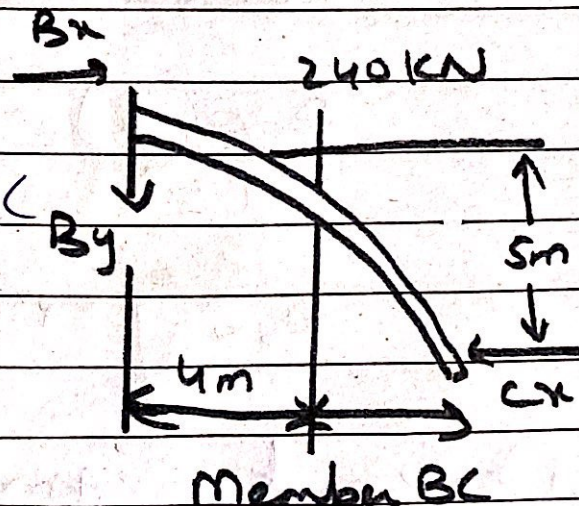 Bx
240 KN
By
5m
4m
Cx
Member BC